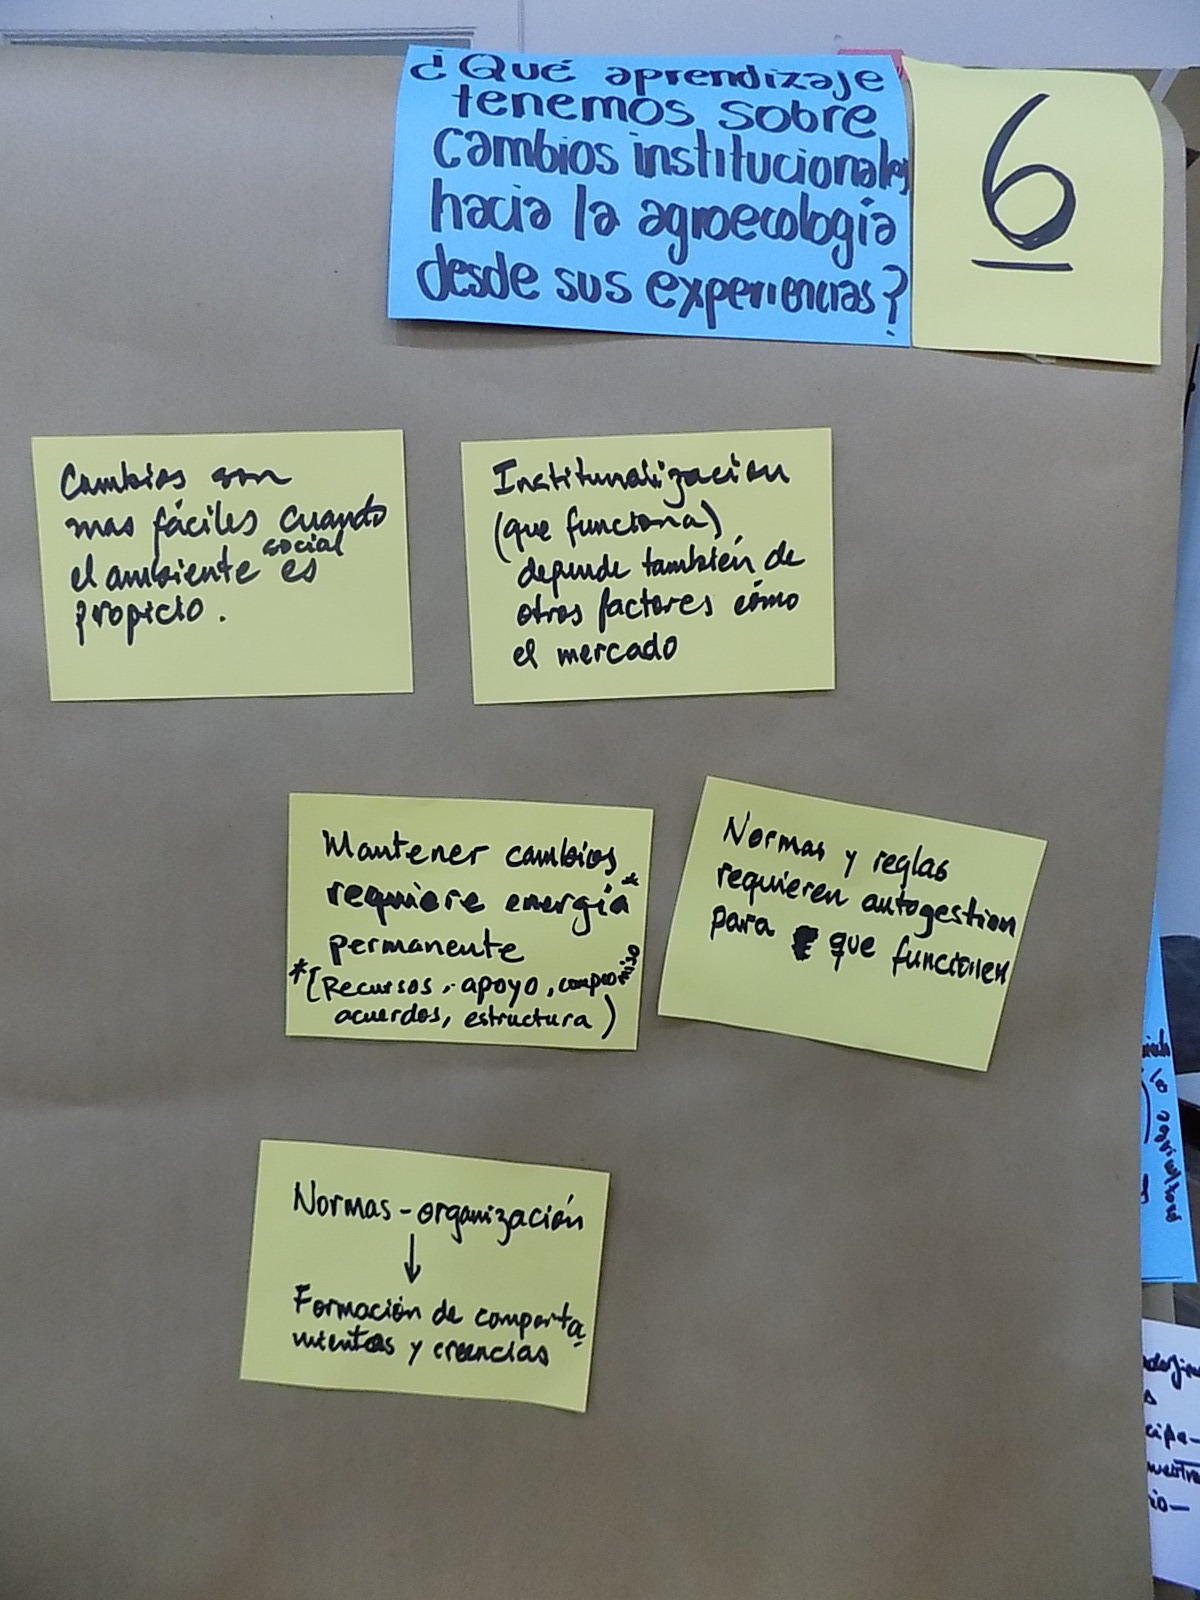 ¿Qué aprendizaje
tenemos sobre
cambios institucionales
hacia la agroecología
desde sus experiencias?
6
Cambios son
mas fáciles cuando
el ambiente social es
propicio.
Institunalización
(que funciona)
depende también de
otros factores cómo
el mercado
Mantener cambios
requiere energía*
permanente
*(Recursos, apoyo, compromiso
acuerdos, estructura)
Normas y reglas
requieren autogestion
para que funcionen
Normas-organización
↓
Formación de comporta
mientos y creencias